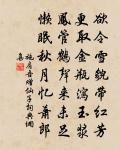 欲令雪貌带红芳
更取金瓶泻玉浆
凤管鹤声来未足
懒眠秋月忆萧郎
施肩吾赠仙子词典网
集